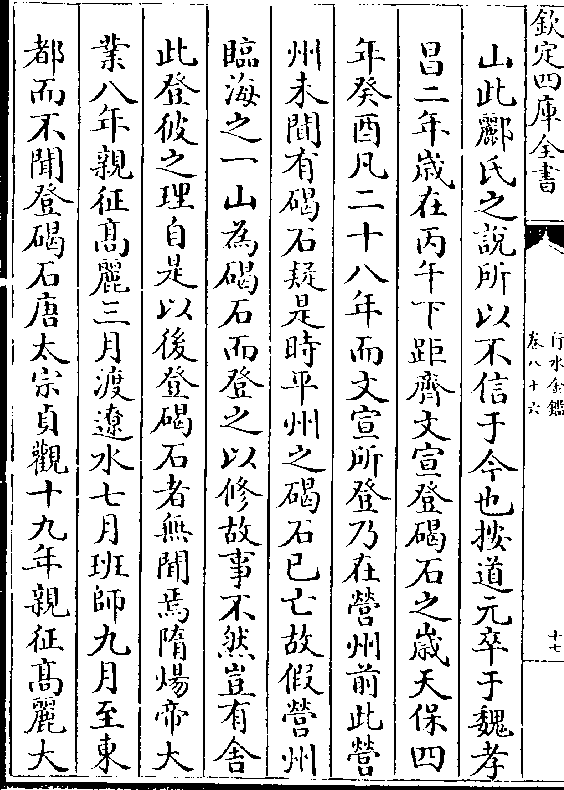 欽定四庫全書
行水金鑑
卷八十六
十七
山此酈氏之說所以不信于今也按道元卒于魏孝
昌二年歲在丙午下距齊文宣登碣石之歲天保四
年癸酉凡二十八年而文宣所登乃在營州前此營
州未聞有碣石疑是時平州之碣石已亡故假營州
臨海之一山為碣石而登之以修故事不然豈有舍
此登彼之理自是以後登碣石者無聞焉隋煬帝大
業八年親征髙麗三月渡遼水七月班師九月至東
都而不聞登碣石唐太宗貞觀十九年親征髙麗大